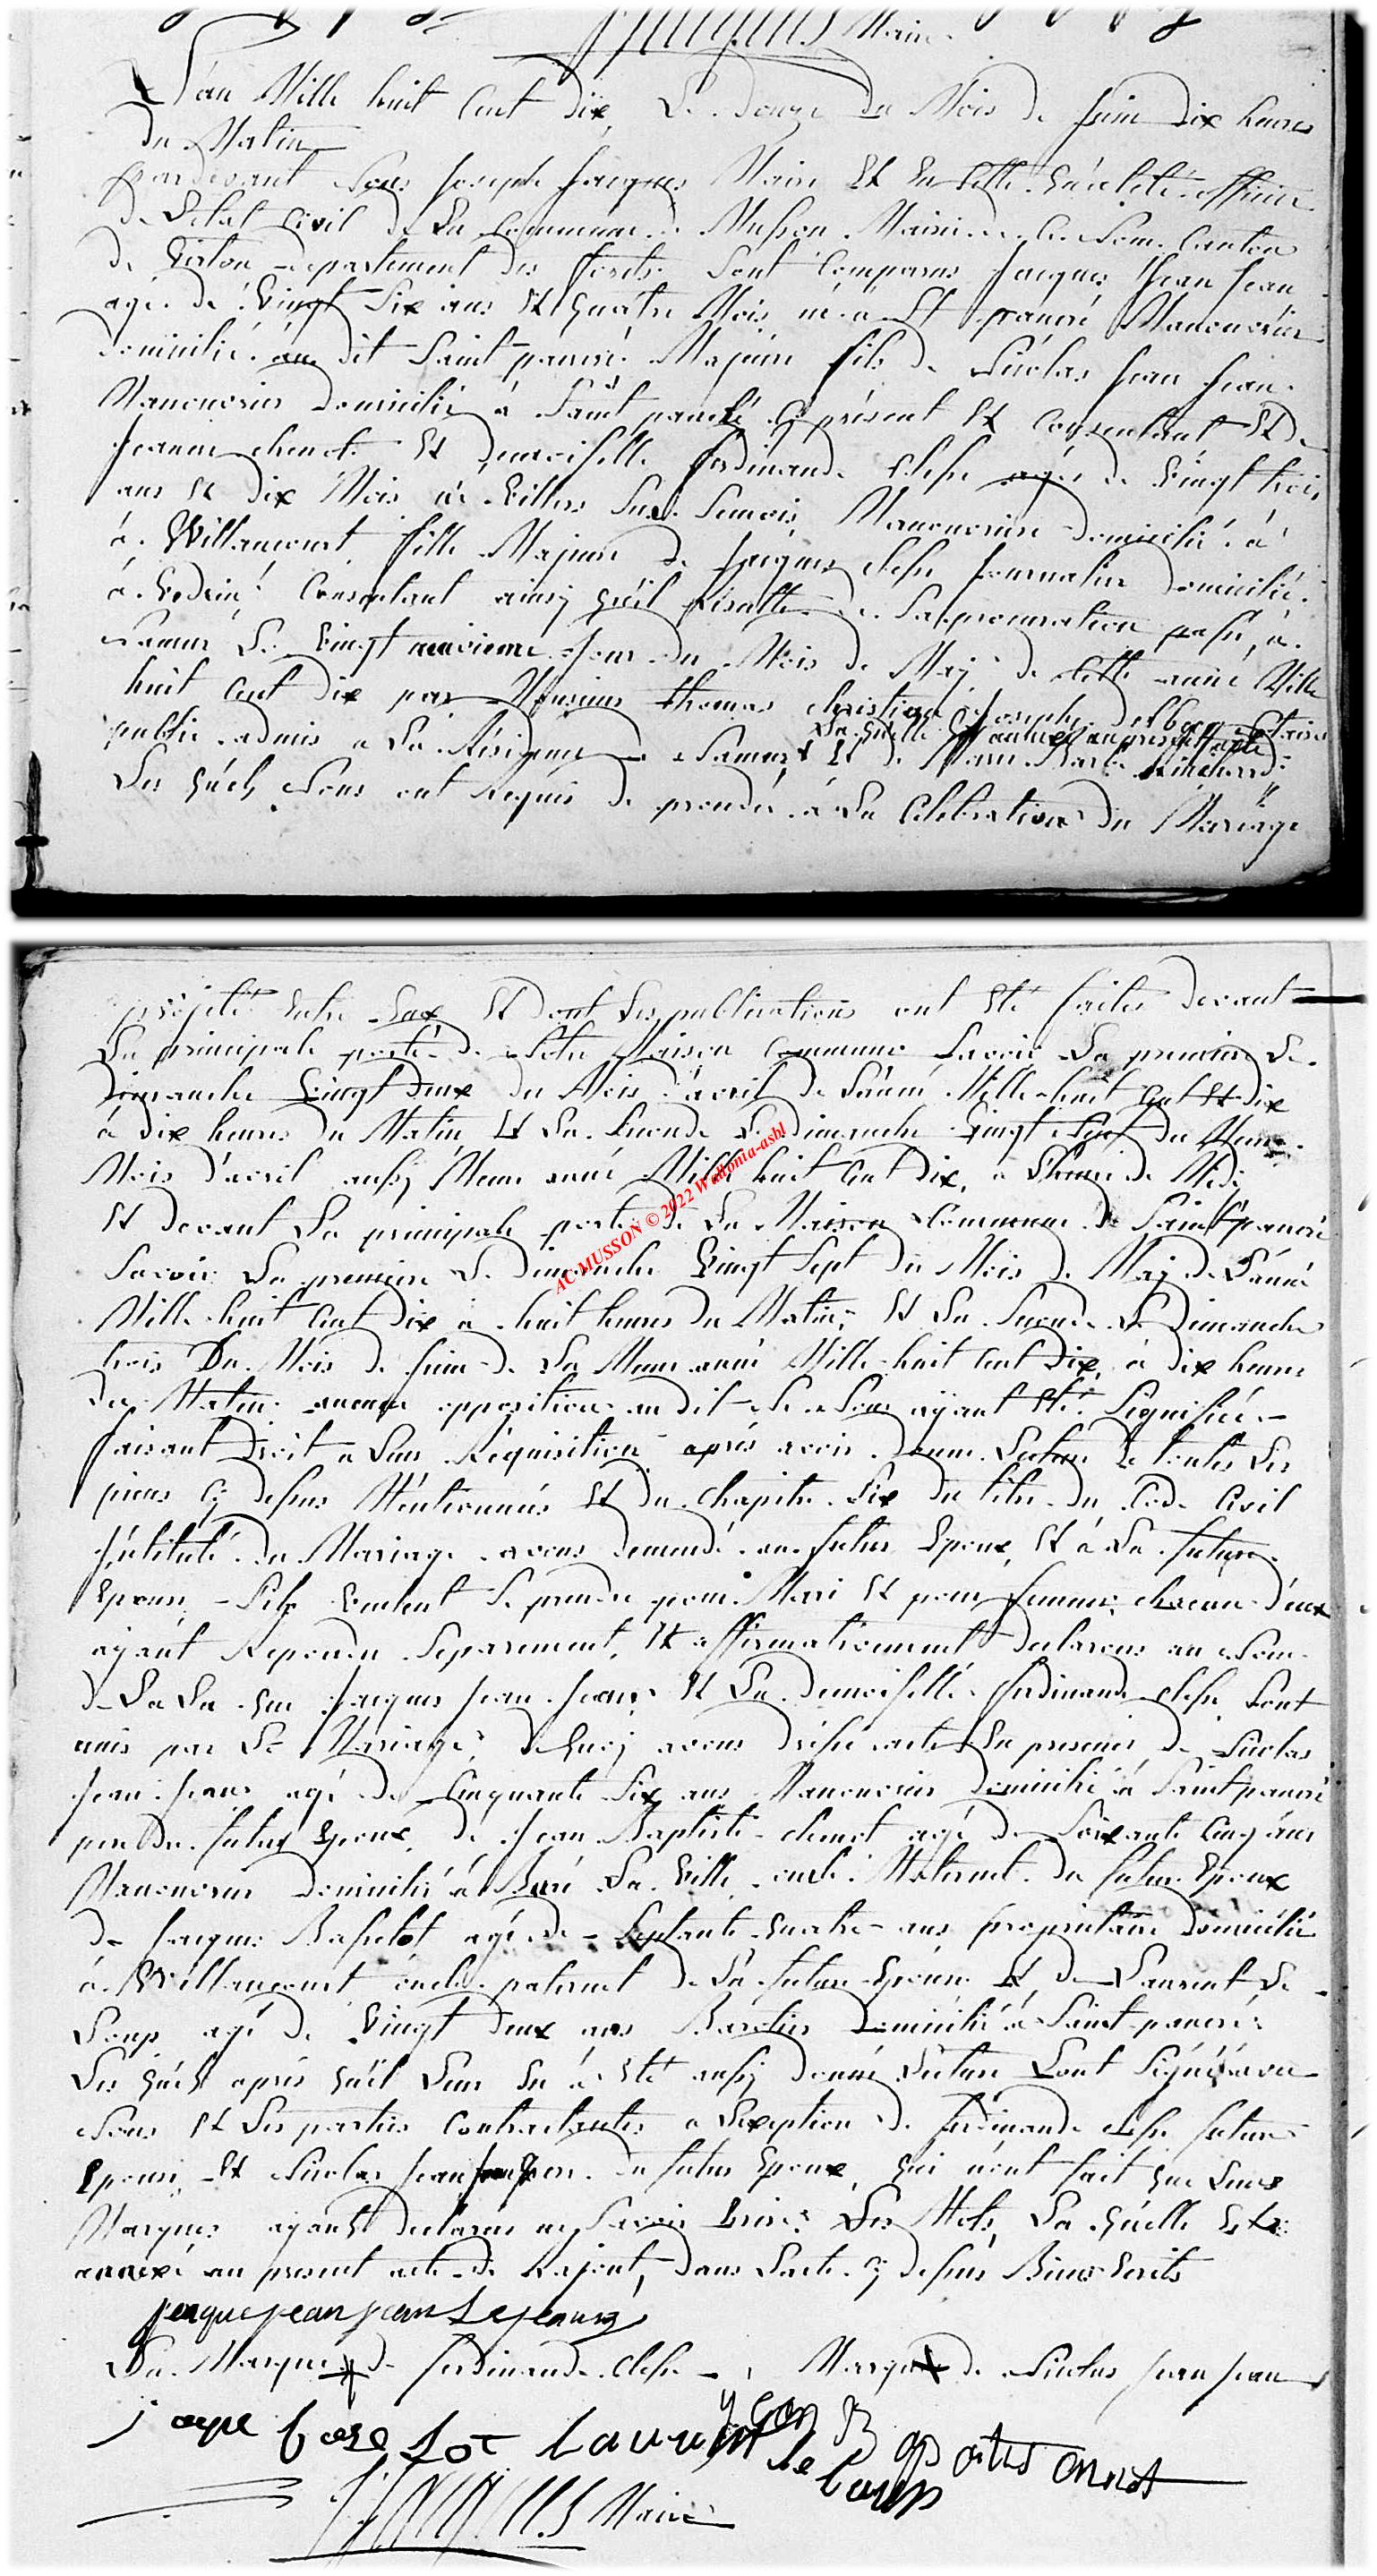 Maire
L'an Mille huit Cent dix, Le douze du Mois de Juin dix heures
du Matin
pardevant Nous Joseph Jacques Maire Et En Cette Qualité officier
de L'Etat Civil de La Commune de Musson Mairie de Ce Nom Canton
de Virton departement des forêts. Sont Comparus Jacques Jean Jean
agé de Vingt Six ans Et Quatre Mois né à St pancré Manouvrier
domicilié au dit Saint pancré Majeur fils de Nicolas Jean Jean
Manouvrier domicilié à Saint pancré Cy présent Et Consentant Et de
Jeanne chenot Et demoiselle ferdinande clesse agée de Vingt trois
ans Et dix Mois née Villers Sur Semois Manouvrière domicilié à
à Willancourt fille Majeure de Jacques clesse Journalier domicilié
à Consentant ainsy qu'il Résulte de La procuration passé, à
Namur Le Vingt neuvieme Jour du Mois de May de Cette année Mille
huit Cent dix par Monsieur thomas christian Joseph Notaire
La Quelle Est annexé au présent acte
public admis à La Résidence de Namur Et de Marie Barbe
Les Quels Nous ont Requis de proceder à La Celebration du Mariage
projeté Entre Eux Et Dont Les publications ont Eté faites devant
La principale porte de Notre Maison Commune Savoir La premiere Le
dimanche Vingt deux du Mois d'avril de L'année Mille huit Cent Et dix
à dix heures du Matin Et La Seconde Le dimanche Vingt Neuf du Meme
Mois d'avril aussy Meme année Mille huit Cent dix, à L'heure de Midi
Et devant La principale porte de La Maison Commune de Saint pancré
Savoir La premiere Le dimanche Vingt Sept du Mois de May de L'année
Mille huit Cent dix à huit heures du Matin, Et La Seconde Le Dimanche
trois Du Mois de Juin de La Meme année Mille huit Cent dix, à dix heures
du Matin aucune opposition au dit Ne Nous ayant Eté Signifiée
faisant Droit à Leur Réquisition après avoir donné Lecture de toutes Les
pieces Cy dessus Mentionnées Et du Chapitre Six du titre du Code Civil
Jntitulé du Mariage avons demandé au futur Epoux, Et à La future
Epouse S'ils Veulent Se prendre pour Mari Et pour femme, chacun d'eux
ayant Repondu Separement, Et affirmativement declarons au Nom
de La Loi que Jacques Jean Jean Et La Demoiselle ferdinande clesse Sont
unis par Le Mariage, De Quoy avons dressé acte En presence de Nicolas
Jean Jean agé de Cinquante Six ans Manouvrier domicilié à Saint pancré
pere du futur Epoux, de Jean Baptiste chenot agé de Soixante Cinq ans
Manouvrier domicilié à La Ville oncle Maternel du futur Epoux
de Jacques agé de Septante Quatre ans proprietaire domicilié
à Willancourt oncle paternel de La future Epouse Et de Laurent Le
Loup agé de Vingt deux ans domicilié à Saint pancré
Les Quels après Qu'il Leur En à Eté aussy donné Lecture Sont Signés avec
Nous Et Les parties Contractantes à L'exception de ferdinande clesse future
Epouse Et Nicolas Jean Jean pere du futur Epoux, qui n'ont fait que Leurs
Marques ayant declarés ne Savoir Ecrire Les Mots, La Quelle Est
annexé au present acte De Rajout, dans L'acte Cy dessus Biens Ecrits
jaque jean jean
La Marque de ferdinande clesse Marque de Nicolas Jean Jean
jaque
Laurent Le Loup
Maire
AC-MUSSON © 2022 Wallonia-asbl